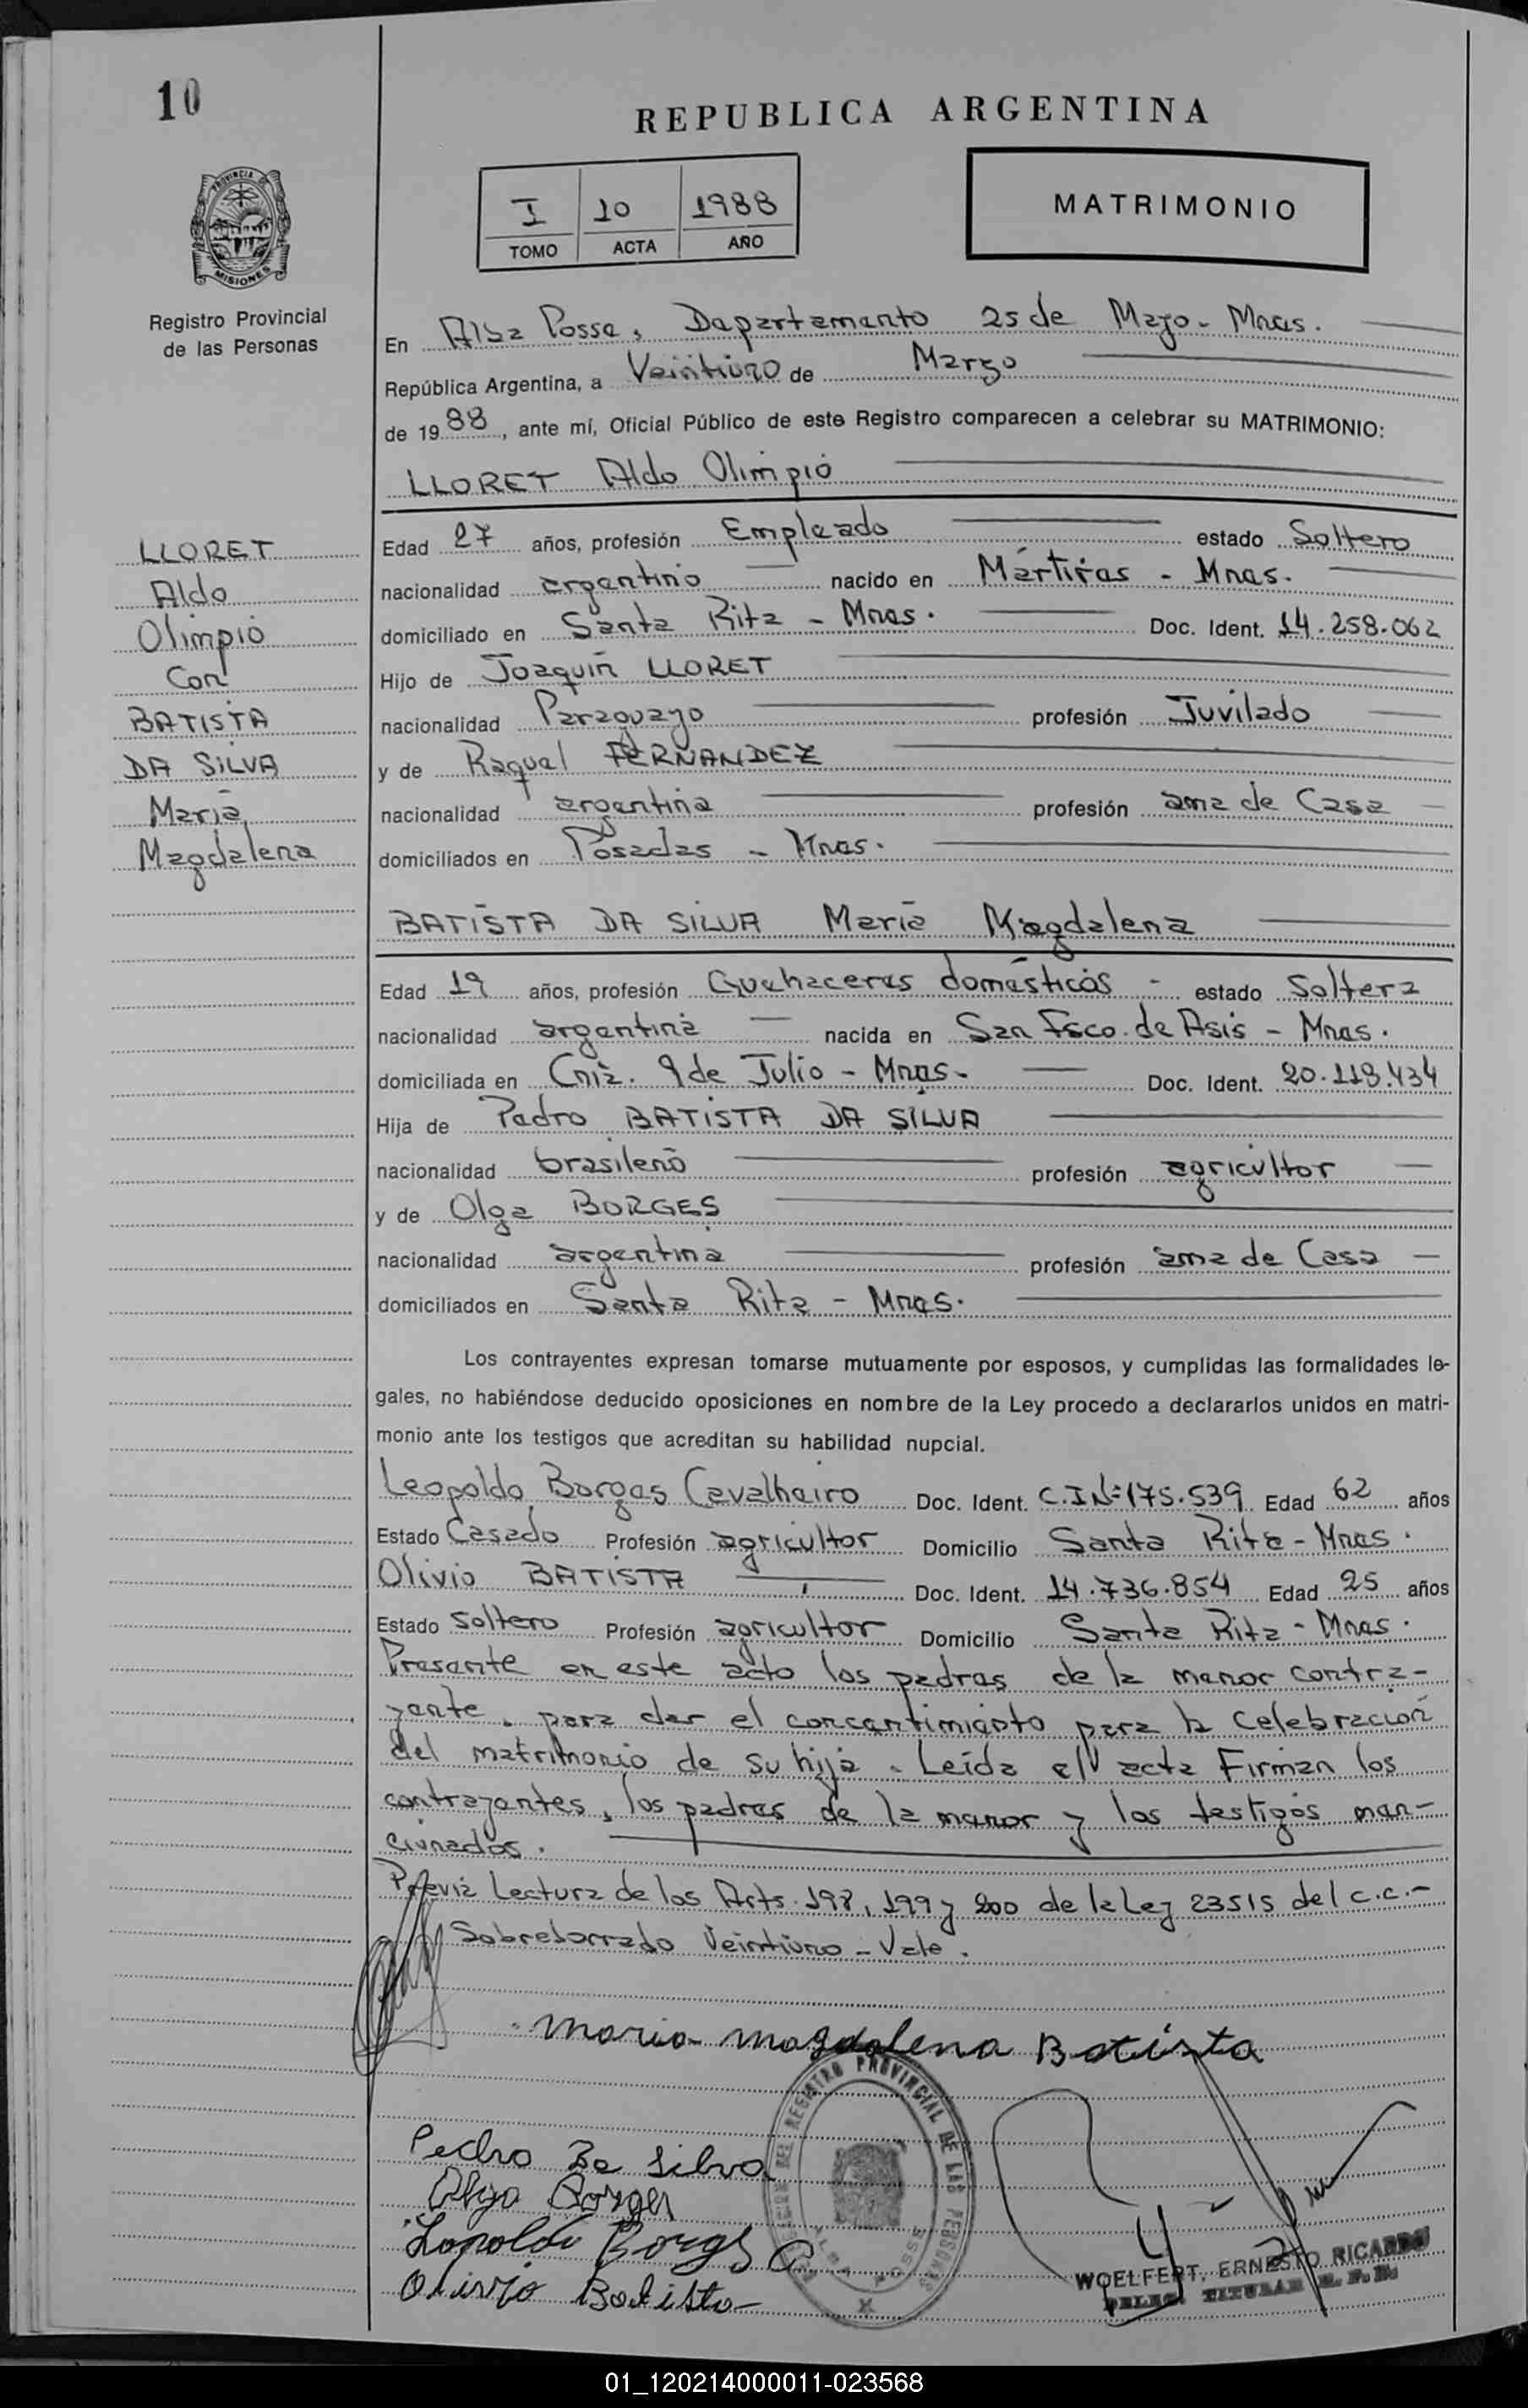 10
REPUBLICA ARGENTINA
I 10 1988
TOMO ACTA AÑO
MATRIMONIO
PROVINCIA DE
MISIONES
Registro Provincial
de las Personas
En Alba Posse, Departamento 25 de Mayo - Mnes.
República Argentina, a Veintiuno de Marzo
de 1988, ante mí, Oficial Público de este Registro comparecen a celebrar su MATRIMONIO:
LLORET Aldo Olimpio
LLORET
Aldo
Olimpio
Con
BATISTA
DA SILVA
Maria
Magdalena
Edad 27 años, profesión Empleado estado Soltero
nacionalidad argentino nacido en Mártires - Mnes.
domiciliado en Santa Rita - Mnes. Doc. Ident. 14.258.062
Hijo de Joaquin LLORET
nacionalidad Paraguayo profesión Juvilado
y de Raquel FERNANDEZ
nacionalidad argentina profesión ama de Casa
domiciliados en Posadas - Mnes.
BATISTA DA SILVA Maria Magdalena
Edad 19 años, profesión Quehaceres domésticos - estado Soltera
nacionalidad argentina nacida en San Fsco. de Asis - Mnes.
domiciliada en Cnia. 9 de Julio - Mnes. Doc. Ident. 20.118.434
Hija de Pedro BATISTA DA SILVA
nacionalidad brasileño profesión agricultor
y de Olga BORGES
nacionalidad argentina profesión ama de Casa
domiciliados en Santa Rita - Mnes.
Los contrayentes expresan tomarse mutuamente por esposos, y cumplidas las formalidades le-
gales, no habiéndose deducido oposiciones en nombre de la Ley procedo a declararlos unidos en matri-
monio ante los testigos que acreditan su habilidad nupcial.
Leopoldo Borges Cavalheiro Doc. Ident. C.I Nº 175.539 Edad 62 años
Estado Casado Profesión agricultor Domicilio Santa Rita - Mnes.
Olivio BATISTA Doc. Ident. 14.736.854 Edad 25 años
Estado Soltero Profesión agricultor Domicilio Santa Rita - Mnes.
Presente en este acto los padres de la menor contra-
yente, para dar el concentimiento para la celebracion
del matrimonio de su hija. Leída el acta Firman los
contrayentes, los padres de la menor y los testigos men-
cionados.
Previa Lectura de los Arts. 198, 199 y 200 de la Ley 23515 del C.C.-
Sobreborrado Veintiuno - Vale.
Maria Magdalena Batista
Pedro Da Silva
Olga Borges
Leopoldo Borges C
Olivio Batista
DEL REGISTRO PROVINCIAL DE LAS PERSONAS
ALBA POSSE
WOELFERT, ERNESTO RICARDO
DELEG. TITULAR R. P. P.
01_120214000011-023568